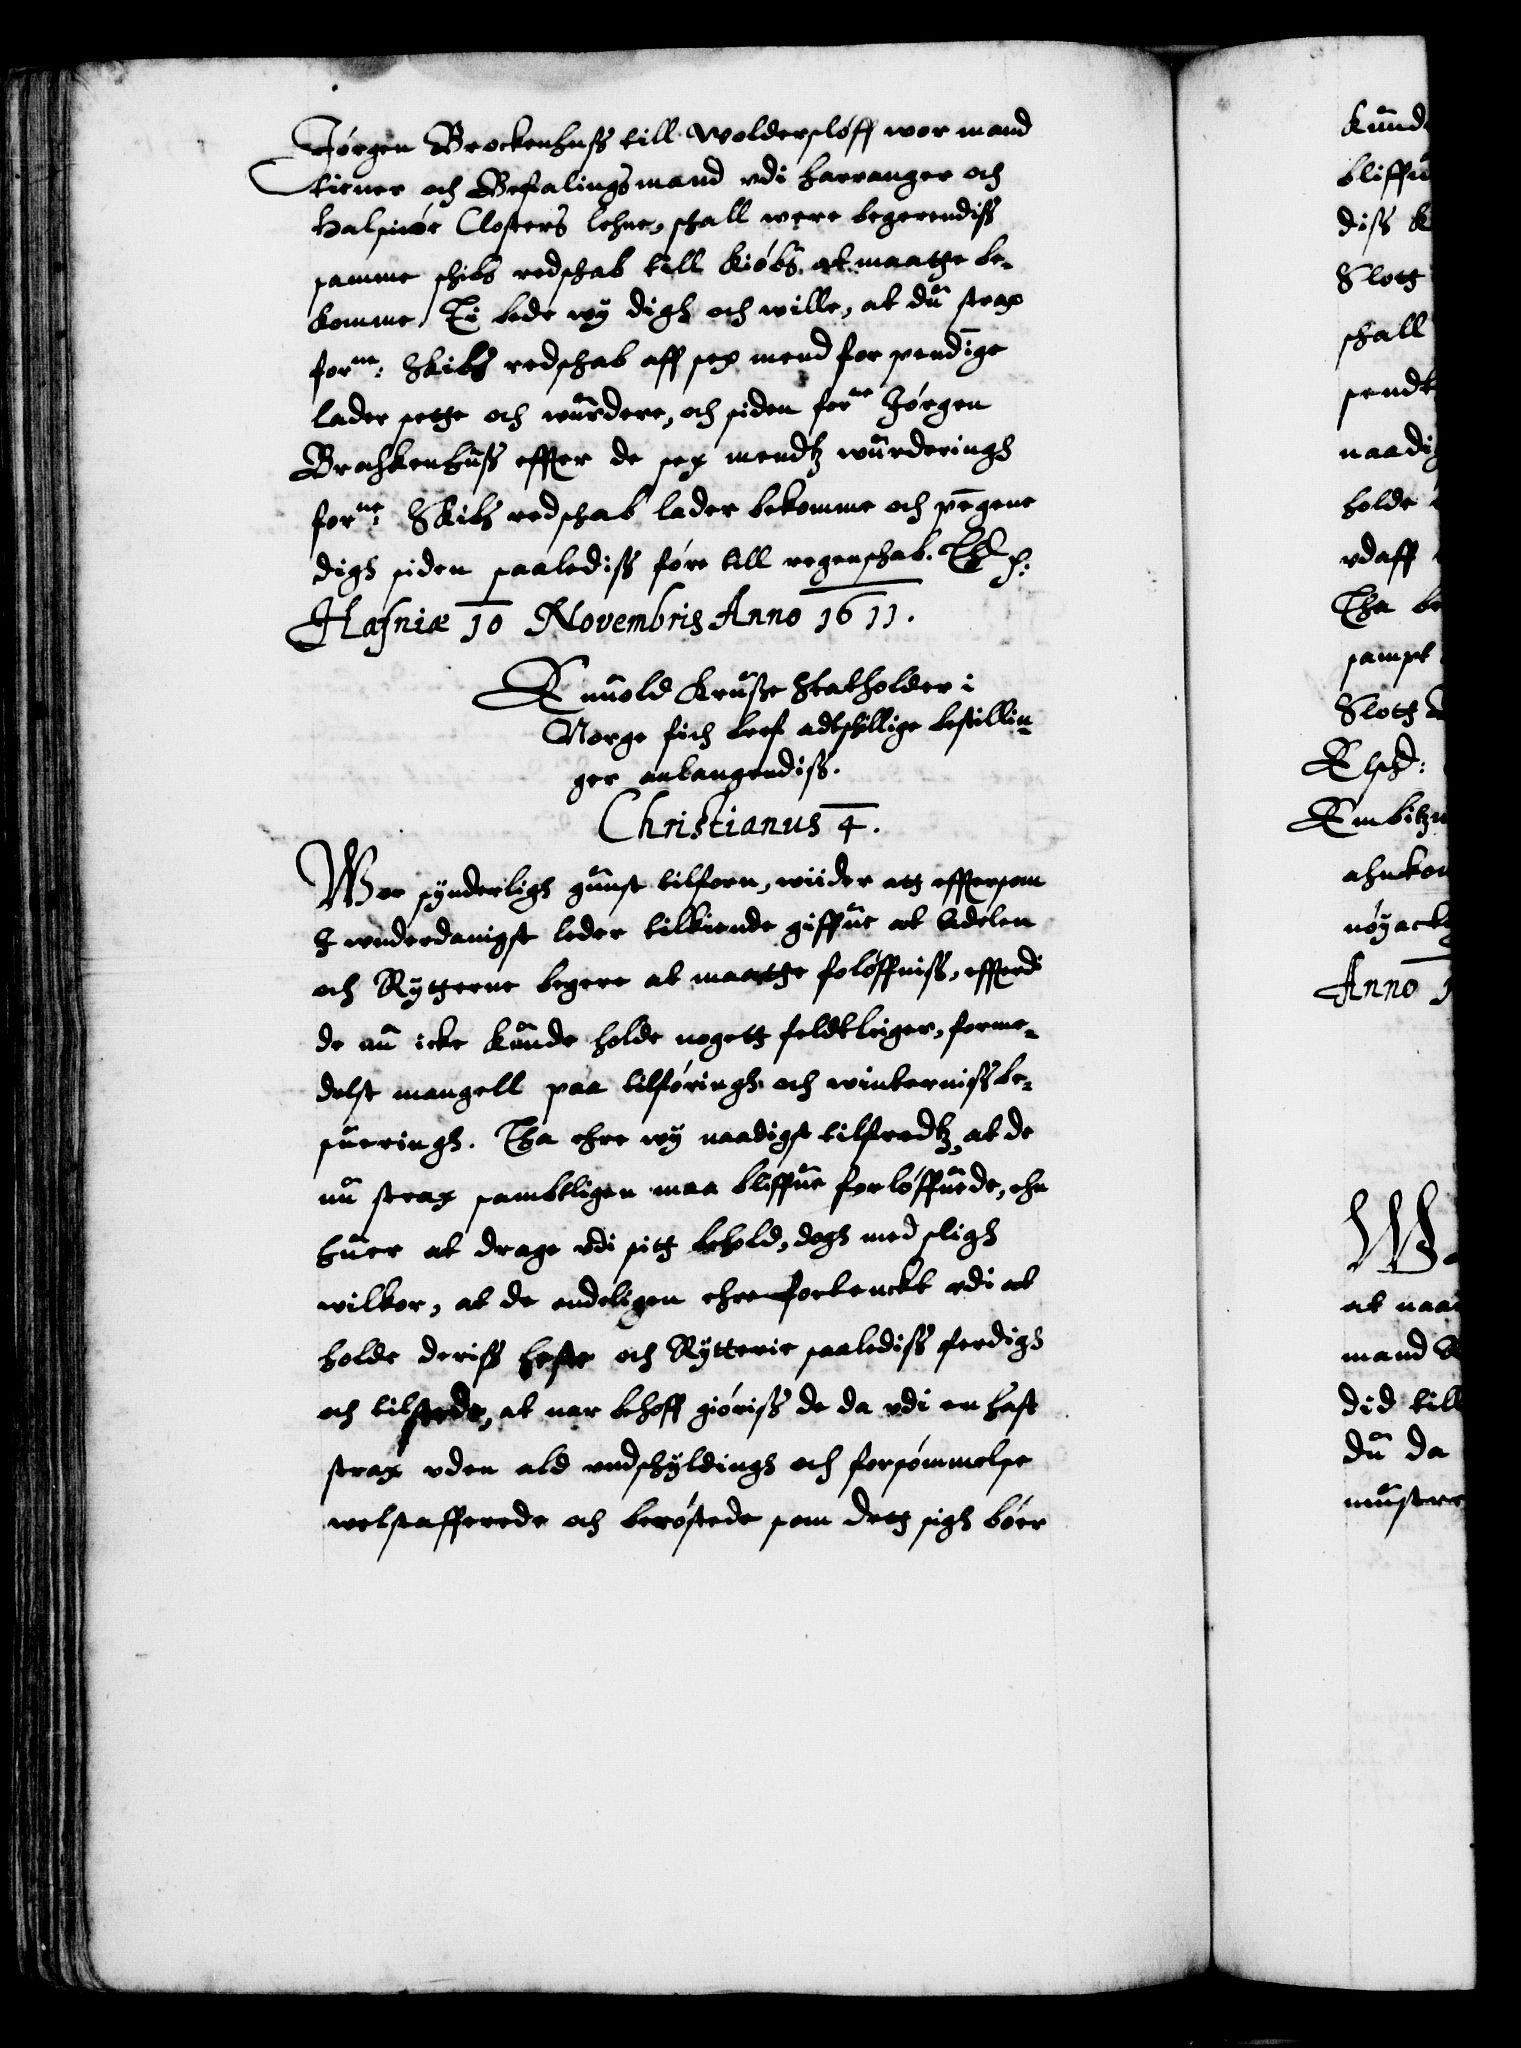 Jørgen Brockenhuss till Wolderslöff wor mand
tiener och Befalingsmand vdi Harranger och
Halsnöe Closters lehne, schall were begerendiss
samme schibs redschab till kiöbs at maatge be-
komme, Ti bede wy digh och wille, at dŭ strax
forne: Skibs redschab aff sex mend for pendinge
lader setge och wŭrdere, och siden forne Jörgen
Brochkenhŭss effter de sex mendtz wŭrderingh
forne: Skibs redschab lader bekomme och pengene
digh siden saalediss före till regenschab.
Hafniæ 10 Novembris Anno 1611.
Enuold Krŭsse Statholder i
Norge fich bref adtschillige bestillin-
ger anlangendiss.
Christianus 4.
Wor synderligh gŭnst tilforn, wiider atg effersom
I wnderdanigst leder tilkiende giffŭe at Adelen
och Rytgerne begere at maatge foløffniss, effterdi
de nŭ icke kŭnde holde nogetg feldtleiger, forme-
delst mangell paa tilföringh och winterniss be-
sŭeringh. Tha ehre wy naadigst tilfredtz, at de
nŭ strax sambtligen maa bliffŭe forlöffŭede, ehn
hŭer at drage vdi sitg behold, dogh med sligh
wilkor, at de endeligen ehre fortenckt vdi at
holde deriss heste och Rytterie saalediss ferdigh
och tilstede, at nar behoff giöriss de da vdi en hast
strax vden ald vndschyldingh och forsömmelse
welstafferede och berøstede som detg sigh böer
kŭnd
bliffŭ
diss
Slotg
schall
sendt
naadig
holde
vdaff
Tha be
sampt
Slotg
Embitzm
ahnkom
nöyactig
Anno 1
at naa
mand
did till
dŭ da
mŭstere